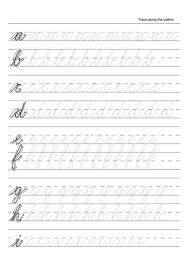 Trace along the outline
a a a a a a a a a a a
b b b b b b b b b b b
c c c c c c c c c c c
d d d d d d d d d d
e e e e e e e e e e e
f f f f f f f f f f f
g g g g g g g g g g
h h h h h h h h h h
i i i i i i i i i i i